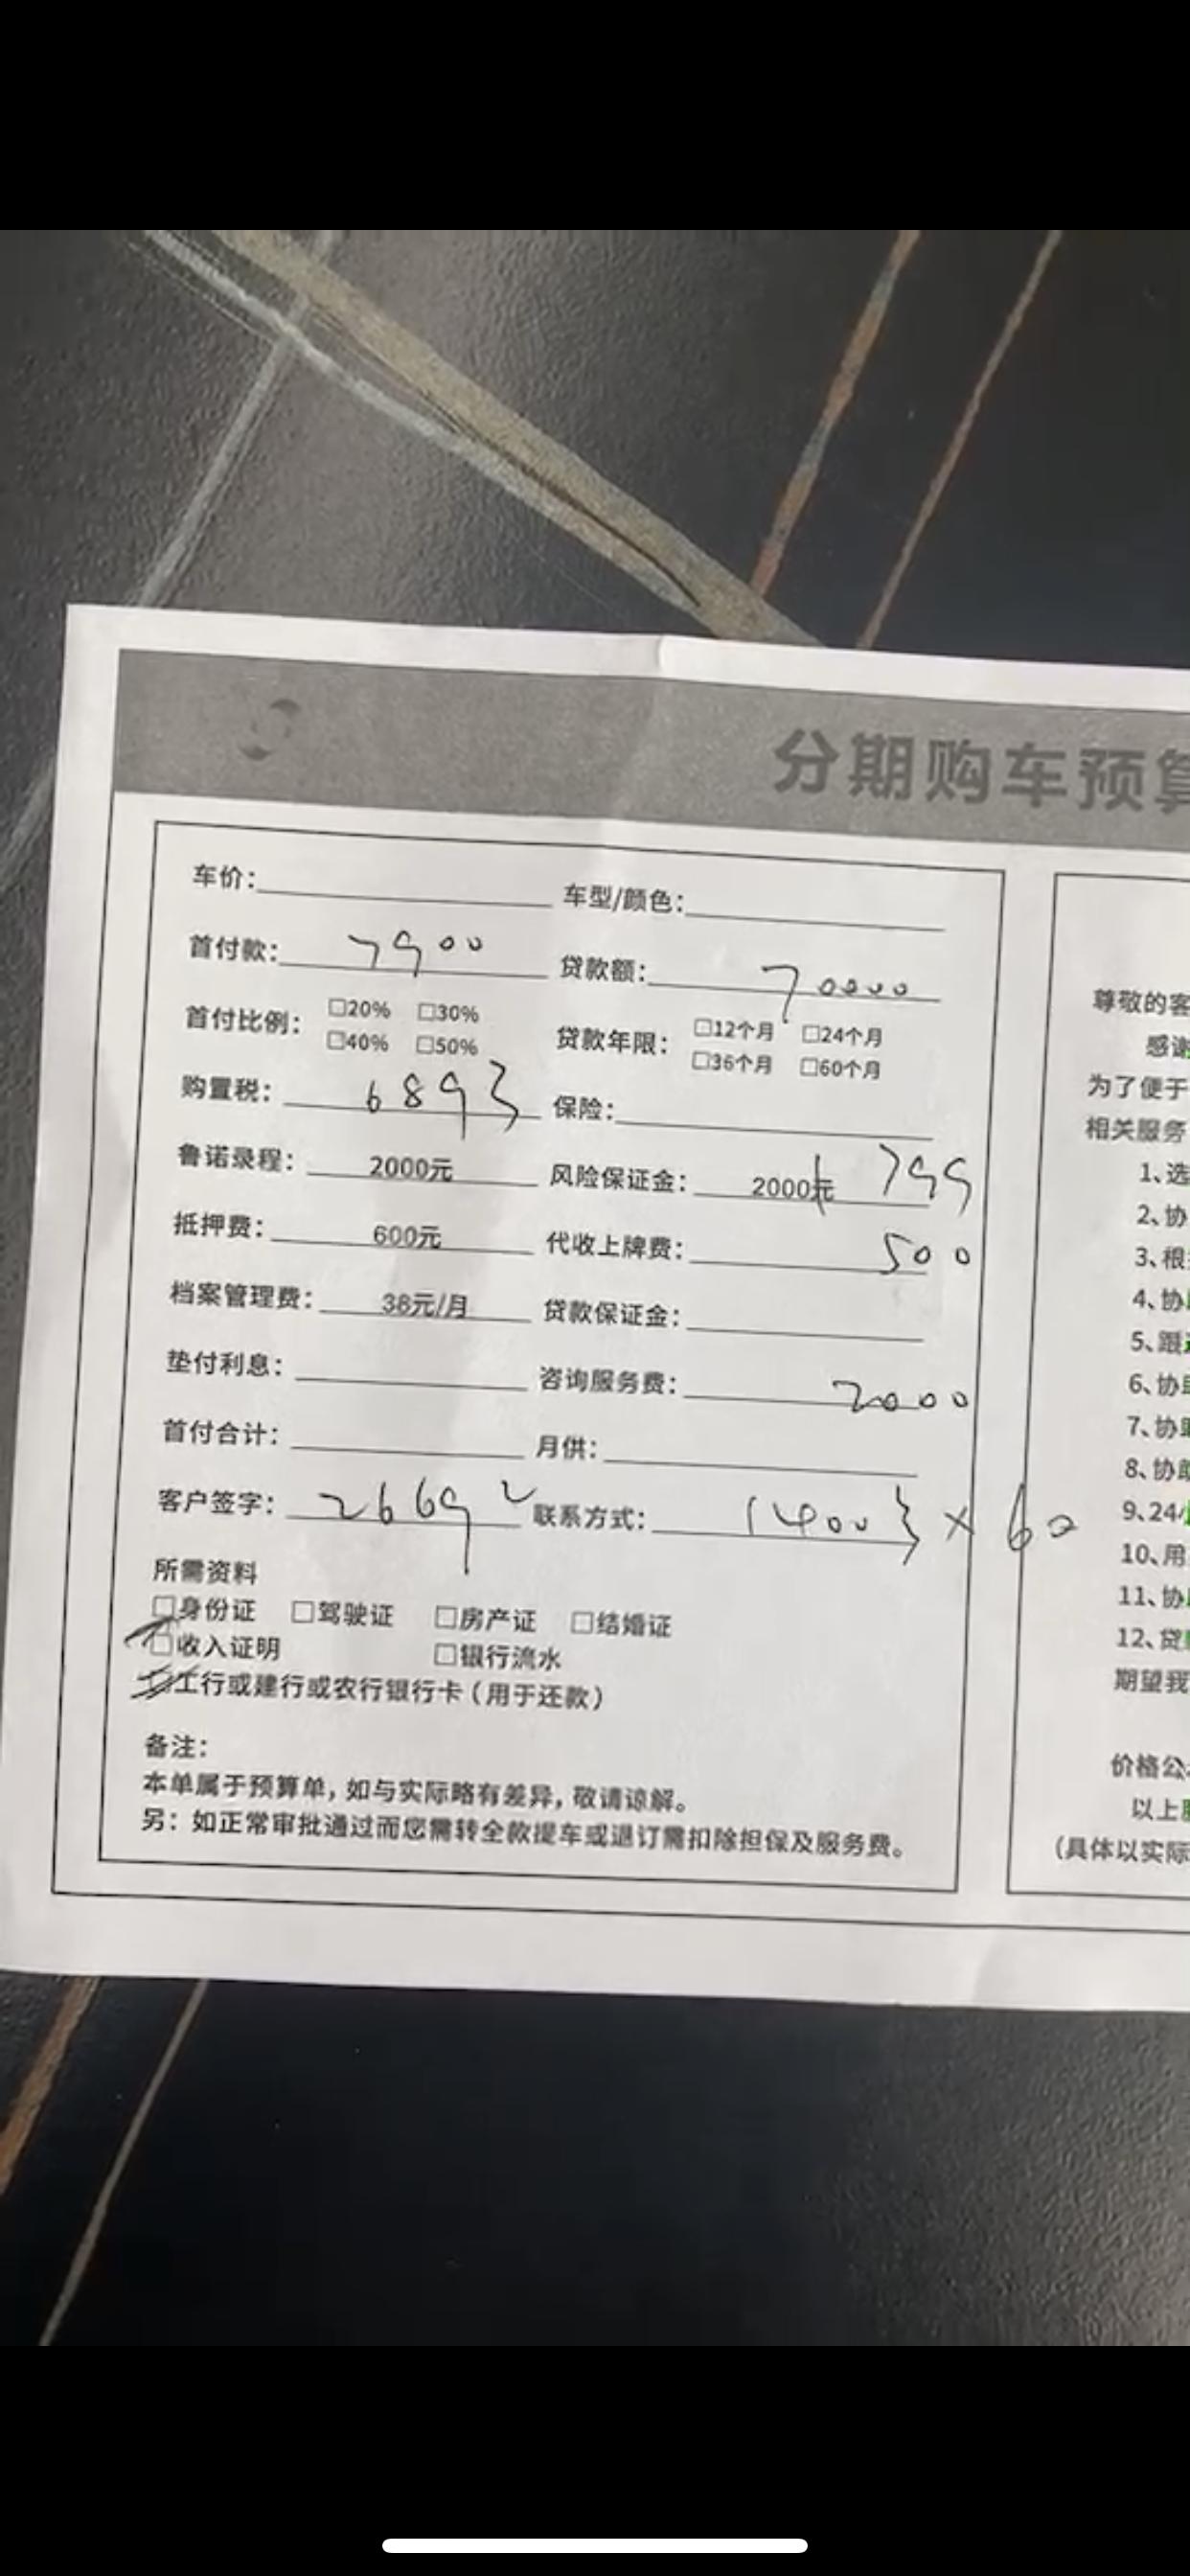 分期购车预算
车价： 车型/颜色：
首付款： 7900 贷款额： 70000
首付比例： □20% □30% □40% □50% 贷款年限： □12个月 □24个月 □36个月 □60个月
购置税： 6893 保险：
鲁诺录程： 2000元 风险保证金： 2000元 + 799
抵押费： 600元 代收上牌费： 500
档案管理费： 38元/月 贷款保证金：
垫付利息： 咨询服务费： 2000
首付合计： 月供：
客户签字： 26692 联系方式： 1400 × 60
所需资料
□身份证 □驾驶证 □房产证 □结婚证
□收入证明 □银行流水
工行或建行或农行银行卡（用于还款）
备注：
本单属于预算单，如与实际略有差异，敬请谅解。
另：如正常审批通过而您需转全款提车或退订需扣除担保及服务费。
尊敬的客
感谢
为了便于
相关服务
1、选
2、协
3、根
4、协
5、跟
6、协
7、协
8、协
9、24
10、用
11、协
12、贷
期望我
价格公
以上
（具体以实际